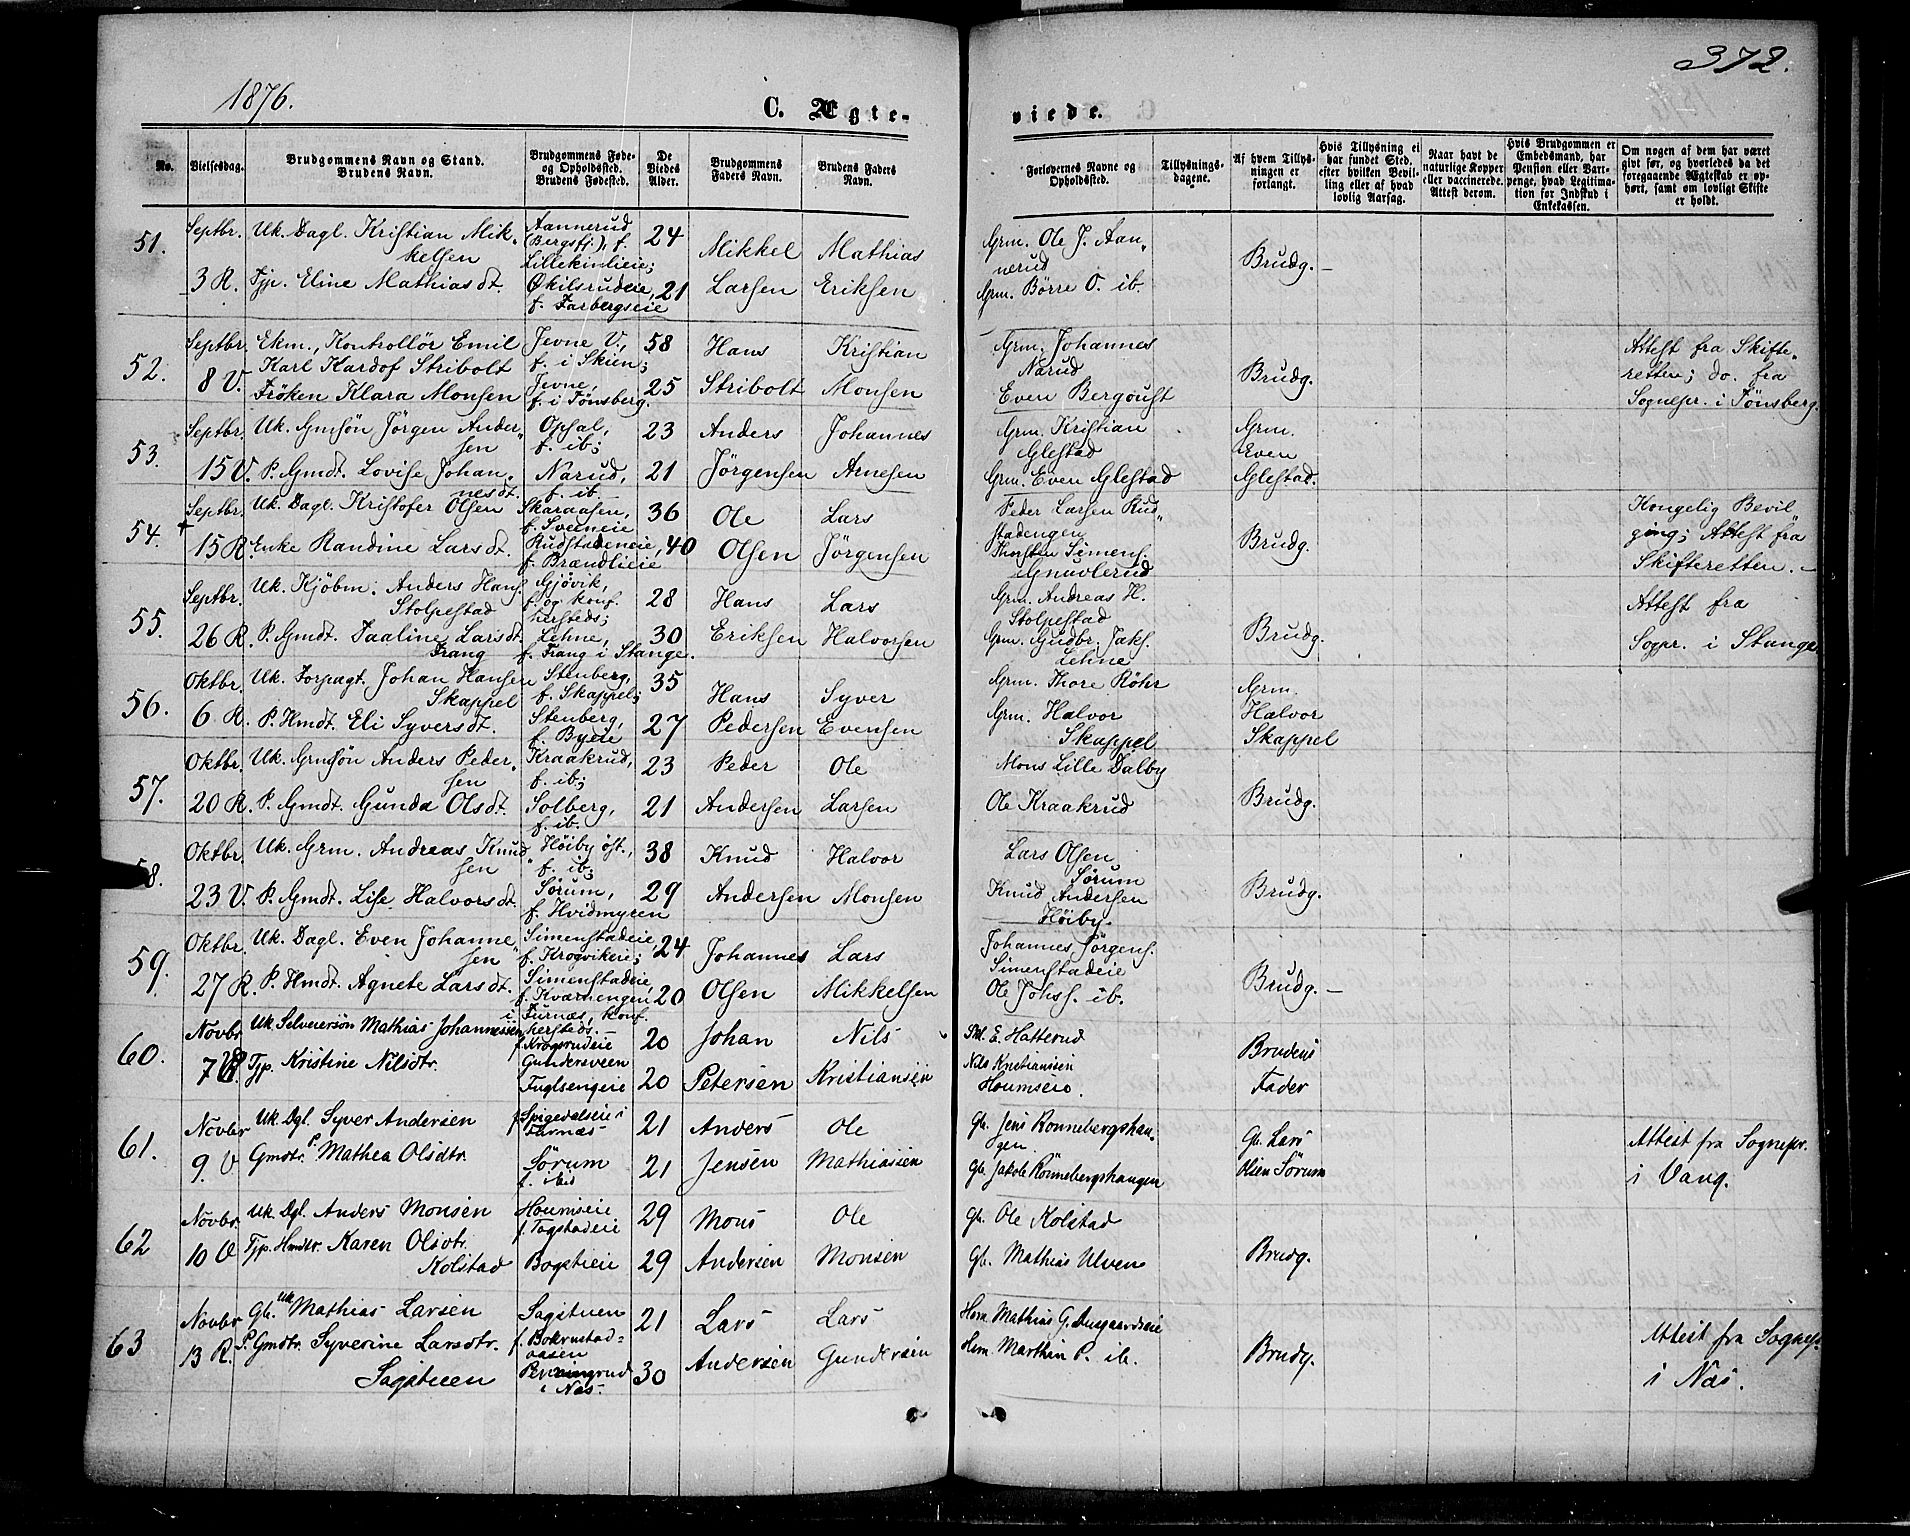 1876.
C. Ægte-
No.
Vielsesdag.
Brudgommens Navn og Stand.
Brudens Navn.
Brudgommens Føde-
og Opholdssted.
Brudens Fødested.
De
Viedes
Alder.
Brudgommens
Faders Navn.
Brudens Faders
Navn.
51. Septbr. Uk. Dagl. Kristian Mik- Aannerud 24 Mikkel Mathias
kelsen (Bergsfj.), f.
Lillekinlieie;
3 R. Tjp. Eline Mathiasdt. Økilsrudeie, 21 Larsen Eriksen
f. Farbergseie
52. Septbr. Ekm., Kontrollör Emil Jevne V., 58 Hans Kristian
Karl Hardof Stribolt f. i Skien;
8 V. Fröken Klara Monsen Jevne, 25 Stribolt Monsen
f. i Tønsberg.
53. Septbr. Uk. Gmsøn Jörgen Ander- Opsal, 23 Anders Johannes
sen f. ib;
15 V. P. Gmdt. Lovise Johan- Narud, 21 Jörgensen Arnesen
nesdt. f. ib
54. Septbr. Uk. Dagl. Kristofer Olsen Skaraasen, 36 Ole Lars
f. Sveeneie
15 R. Enke Randine Larsdt. Rudstadeneie, 40 Olsen Jörgensen
f. Brændlieie
55. Septbr. Uk. Kjöbm. Anders Hans. Gjövik, 28 Hans Lars
Stolpestad f. og konf.
hersteds;
26 R. P. Gmdt. Paaline Larsdt. Lehne, 30 Eriksen Halvorsen
Frang f. Frang i Stange.
56. Oktbr. Uk. Forpagt. Johan Hansen Stenberg, 35 Hans Syver
Skappel f. Skappel;
6 R. P. Hmdt. Eli Syversdt. Stenberg, 27 Pedersen Evensen
f. Byeie
57. Oktbr. Uk. Gmsøn Anders Peder- Kraakrud, 23 Peder Ole
sen f. ib;
20 R. P. Gmdt. Gunda Olsdt. Solberg, 21 Andersen Larsen
f. ib.
58. Oktbr. Uk. Grm. Andreas Knud- Høiby öst., 38 Knud Halvor
sen f. ib;
23 V. P. Gmdt. Lise Halvorsdt. Sörum, 29 Andersen Monsen
f. Hvidmyren
59. Oktbr. Uk. Dagl. Even Johanne- Simenstadeie, 24 Johannes Lars
sen f. Krogvikeie;
27 R. P. Hmdt. Agnete Larsdt. Simenstadeie, 20 Olsen Mikkelsen
f. Kværnengen
i Furnæs, konf.
hersteds.
60. Novbr. Uk. Selveiersön Mathias Johannessen f. Krogsrudeie 20 Johan Nils
7 R. Tjp. Kristine Nilsdtr. Gundersveen
Fuglsengeie 20 Petersen Kristiansen
61. Novbr Uk. Dgl. Syver Andersen f. Spigedalseie i 21 Anders Ole
Furnæs
9. V Gmdtr. P. Mathea Olsdtr. Sørum 21 Jensen Mathiassen
f. ibid
62 Novbr. Uk. Dgl. Anders Monsen Houmseie 29 Mons Ole
f. Togstadeie
10 V Tjp. Hmdtr. Karen Olsdtr. Bogstieie 29 Andersen Monsen
Kolstad
63 Novbr Gb. Uk. Mathias Larsen Sagstuen 21 Lars Lars
f. Bokrustad-
aasen
13 R. P. Gmdtr. Syverine Larsdtr. Penningrud 30 Andersen Gundersen
Sagstuen i Næs.
372.
viede.
Forlovernes Navne og
Opholdssted.
Tillysnings-
dagene.
Af hvem Tillys-
ningen er
forlangt.
Hvis Tillysning ei
har fundet Sted,
efter hvilken Bevil-
ling eller af hvad
lovlig Aarsag.
Naar havt de
naturlige Kopper
eller vaccinerede.
Attest derom.
Hvis Brudgommen er
Embedsmand, har
Pension eller Vart-
penge, hvad Legitima-
tion for Indskud i
Enkekassen.
Om nogen af dem har været
gift før, og hvorledes da det
foregaaende Ægteskab er op-
hørt, samt om lovligt Skifte
er holdt.
Grm. Ole J. Aan-
nerud Brudg.
Grm. Börre O. ib.
Grm. Johannes Attest fra Skifte-
Narud Brudg. retten; do. fra
Even Bergqust Sognepr. i Tønsberg.
Grm. Kristian Grm.
Glestad Even
Grm. Even Glestad Glestad.
Peder Larsen Rud- Kongelig Bevil-
stadengen Brudg. ging; Attest fra
Thorsten Simens. Skifteretten.
Gnuvlerud
Grm. Andreas H. Attest fra
Stolpestad Brudg.
Grm. Gudbr. Jaks. Sogpr. i Stange.
Lehne
Grm. Thore Röhr Grm.
Grm. Halvor Halvor
Skappel Skappel
Mons Lille Dalby
Ole Kraakrud Brudg.
Lars Olsen
Sørum
Knud Andersen Brudg.
Høiby.
Johannes Jörgens.
Simenstadeie Brudg.
Ole Johs. ib.
E. Hatterud Brudens
Nils Kristiansen
Houmseie. Fader
Gb. Jens Rönnebergshau- Gb. Lars Attest fra Sognepr.
gen
Gb. Jakob Rönnebergshaugen Olsen Sørum i Vang.
Gb. Ole Kolstad
Gb. Mathias Ulven Brudg.
Hsm. Mathias G. Attest fra Sognepr
Hsm. Marthin P. ib. Brudg. i Næs.